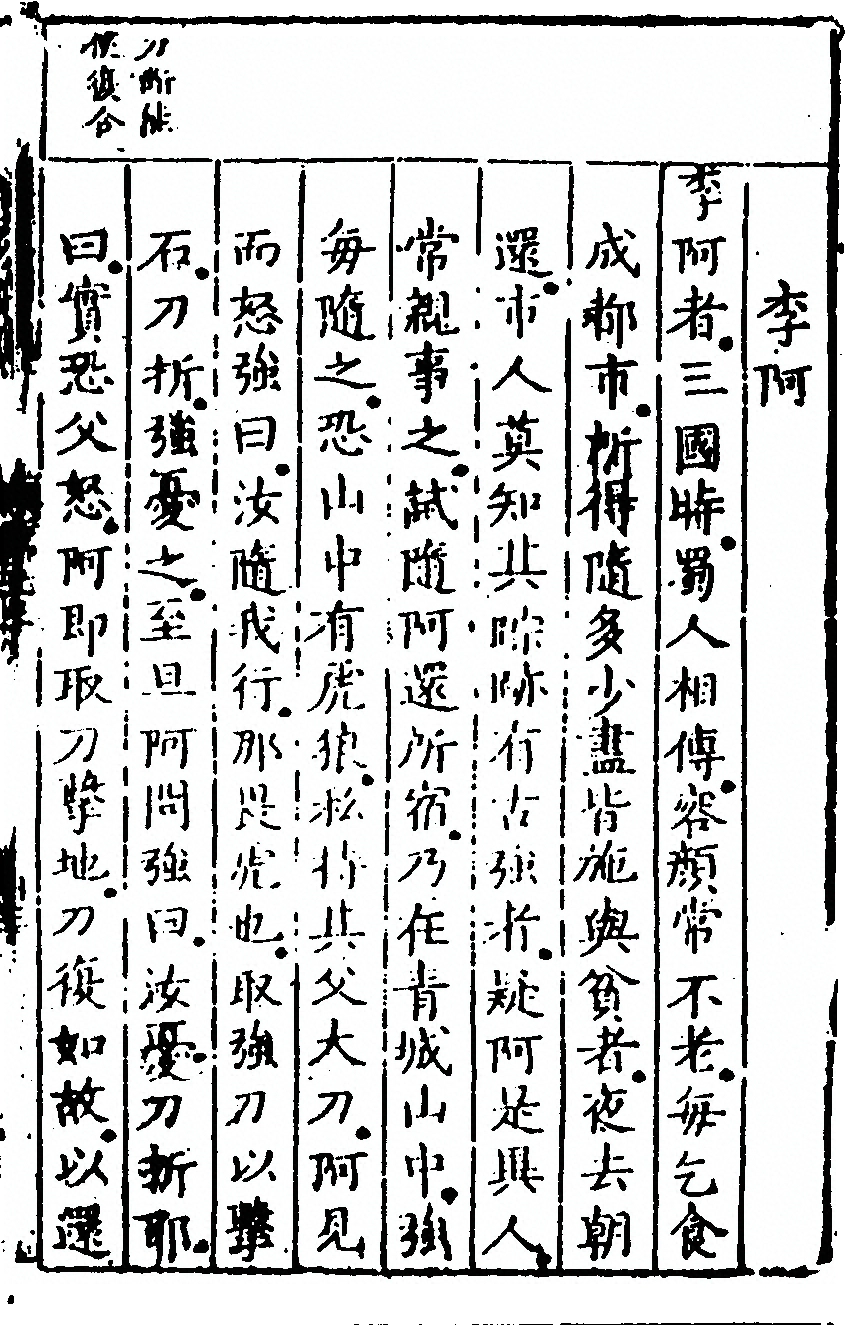 刀斷能
使復合
李阿
李阿者。三國時。蜀人相傳。容顏常不老。每乞食
成都市。所得隨多少盡皆施與貧者。夜去朝
還。市人莫知其踪跡有古強者。疑阿是異人。
常親事之。試隨阿還所宿。乃在青城山中。強
每隨之。恐山中有虎狼。私持其父大刀。阿見
而怒強曰。汝隨我行。那畏虎也。取強刀以擊
石。刀折。強憂之。至旦阿問強曰。汝憂刀折耶。
曰。實恐父怒。阿即取刀擊地。刀復如故。以還